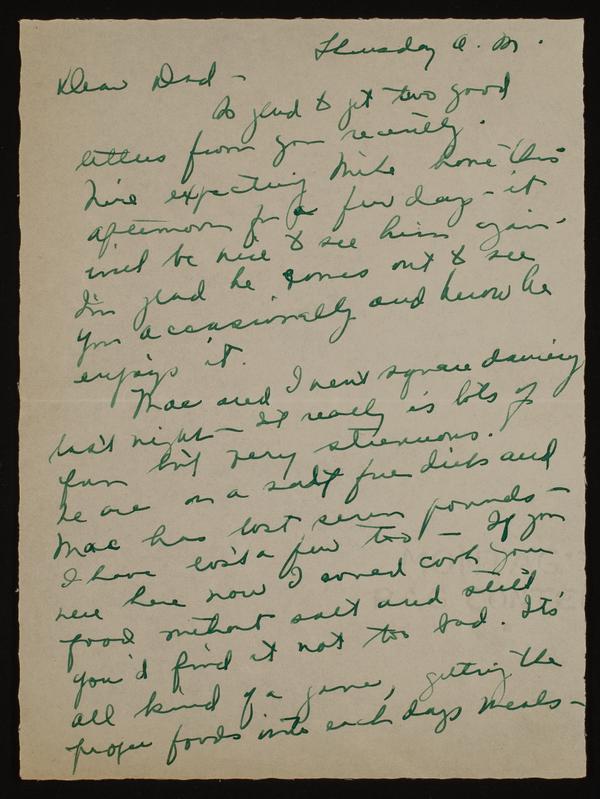 Thursday A.M.
Dear Dad -
So glad to get two good
letters from you recently.
We're expecting Mike home this
afternoon for a few days - it
will be nice to see him again.
I'm glad he comes out to see
you occasionally and know he
enjoys it.
Mac and I went square dancing
last night - It really is lots of
fun but very strenuous.
We are on a salt free diet and
Mac has lost seven pounds -
I have lost a few too - If you
were here now I could cook your
food without salt and still
you'd find it not too bad. It's
all kind of a game, getting the
proper foods into each days meals -